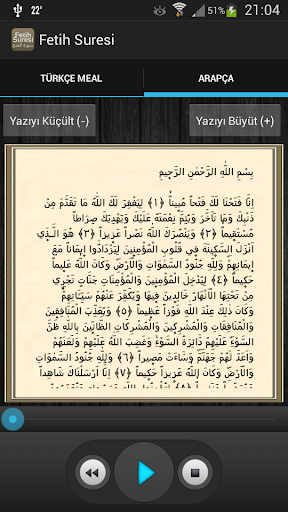 22°
56%
21:04
Fetih Suresi
Fetih Suresi
TÜRKÇE MEAL
ARAPÇA
Yazıyı Küçült (-)
Yazıyı Büyüt (+)
بِسْمِ اللّٰهِ الرَّحْمٰنِ الرَّحِيمِ
اِنَّا فَتَحْنَا لَكَ فَتْحاً مُبِيناً ﴿١﴾ لِيَغْفِرَ لَكَ اللّٰهُ مَا تَقَدَّمَ مِنْ
ذَنْبِكَ وَمَا تَاَخَّرَ وَيُتِمَّ نِعْمَتَهُ عَلَيْكَ وَيَهْدِيَكَ صِرَاطاً
مُسْتَقِيماً ﴿٢﴾ وَيَنْصُرَكَ اللّٰهُ نَصْراً عَزِيزاً ﴿٣﴾ هُوَ الَّذِي
اَنْزَلَ السَّكِينَةَ فِي قُلُوبِ الْمُؤْمِنِينَ لِيَزْدَادُوا اِيمَاناً مَعَ
اِيمَانِهِمْ وَلِلّٰهِ جُنُودُ السَّمٰوَاتِ وَالْاَرْضِ وَكَانَ اللّٰهُ عَلِيماً
حَكِيماً ﴿٤﴾ لِيُدْخِلَ الْمُؤْمِنِينَ وَالْمُؤْمِنَاتِ جَنَّاتٍ تَجْرِي
مِنْ تَحْتِهَا الْاَنْهَارُ خَالِدِينَ فِيهَا وَيُكَفِّرَ عَنْهُمْ سَيِّـَٔاتِهِمْ
وَكَانَ ذٰلِكَ عِنْدَ اللّٰهِ فَوْزاً عَظِيماً ﴿٥﴾ وَيُعَذِّبَ الْمُنَافِقِينَ
وَالْمُنَافِقَاتِ وَالْمُشْرِكِينَ وَالْمُشْرِكَاتِ الظَّانِّينَ بِاللّٰهِ ظَنَّ
السَّوْءِ عَلَيْهِمْ دَائِرَةُ السَّوْءِ وَغَضِبَ اللّٰهُ عَلَيْهِمْ وَلَعَنَهُمْ
وَاَعَدَّ لَهُمْ جَهَنَّمَ وَسَاءَتْ مَصِيراً ﴿٦﴾ وَلِلّٰهِ جُنُودُ السَّمٰوَاتِ
وَالْاَرْضِ وَكَانَ اللّٰهُ عَزِيزاً حَكِيماً ﴿٧﴾ اِنَّا اَرْسَلْنَاكَ شَاهِداً